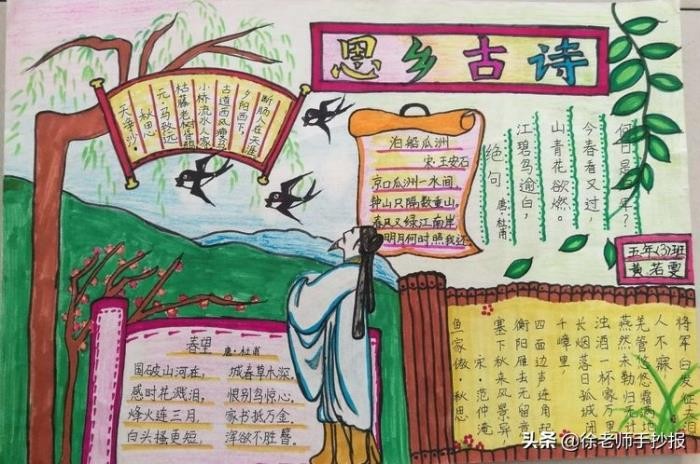 思乡古诗
天净沙·
秋思
元·马致远
枯藤老树昏鸦
小桥流水人家
古道西风瘦马
夕阳西下,
断肠人在天涯
泊船瓜洲
宋·王安石
京口瓜洲一水间,
钟山只隔数重山。
春风又绿江南岸
明月何时照我还
绝句 唐·杜甫
江碧鸟逾白,
山青花欲燃。
今春看又过,
何日是归年?
五年(3)班
黄若雯
春望
唐·杜甫
国破山河在, 城春草木深。
感时花溅泪, 恨别鸟惊心。
烽火连三月, 家书抵万金。
白头搔更短, 浑欲不胜簪。
鱼家傲·秋思
宋·范仲淹
塞下秋来风景异
衡阳雁去无留意
四面边声连角起
千嶂里,
长烟落日孤城闭
浊酒一杯家万里
燕然未勒归无计
羌管悠悠霜满地
人不寐
将军白发征夫泪
头条 @徐老师手抄报